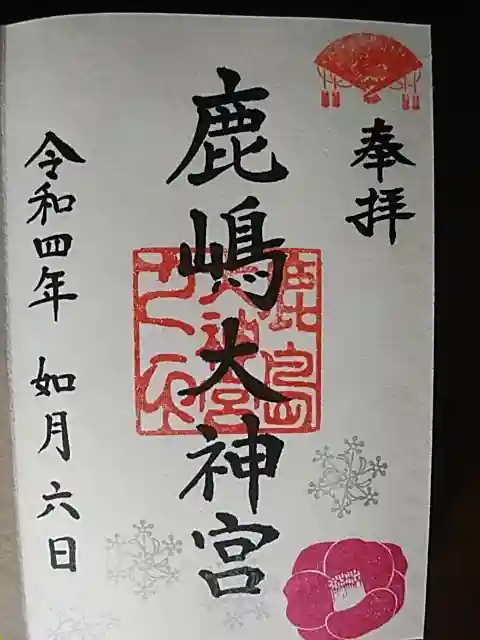 奉拝
鹿嶋大神宮
令和四年 如月六日